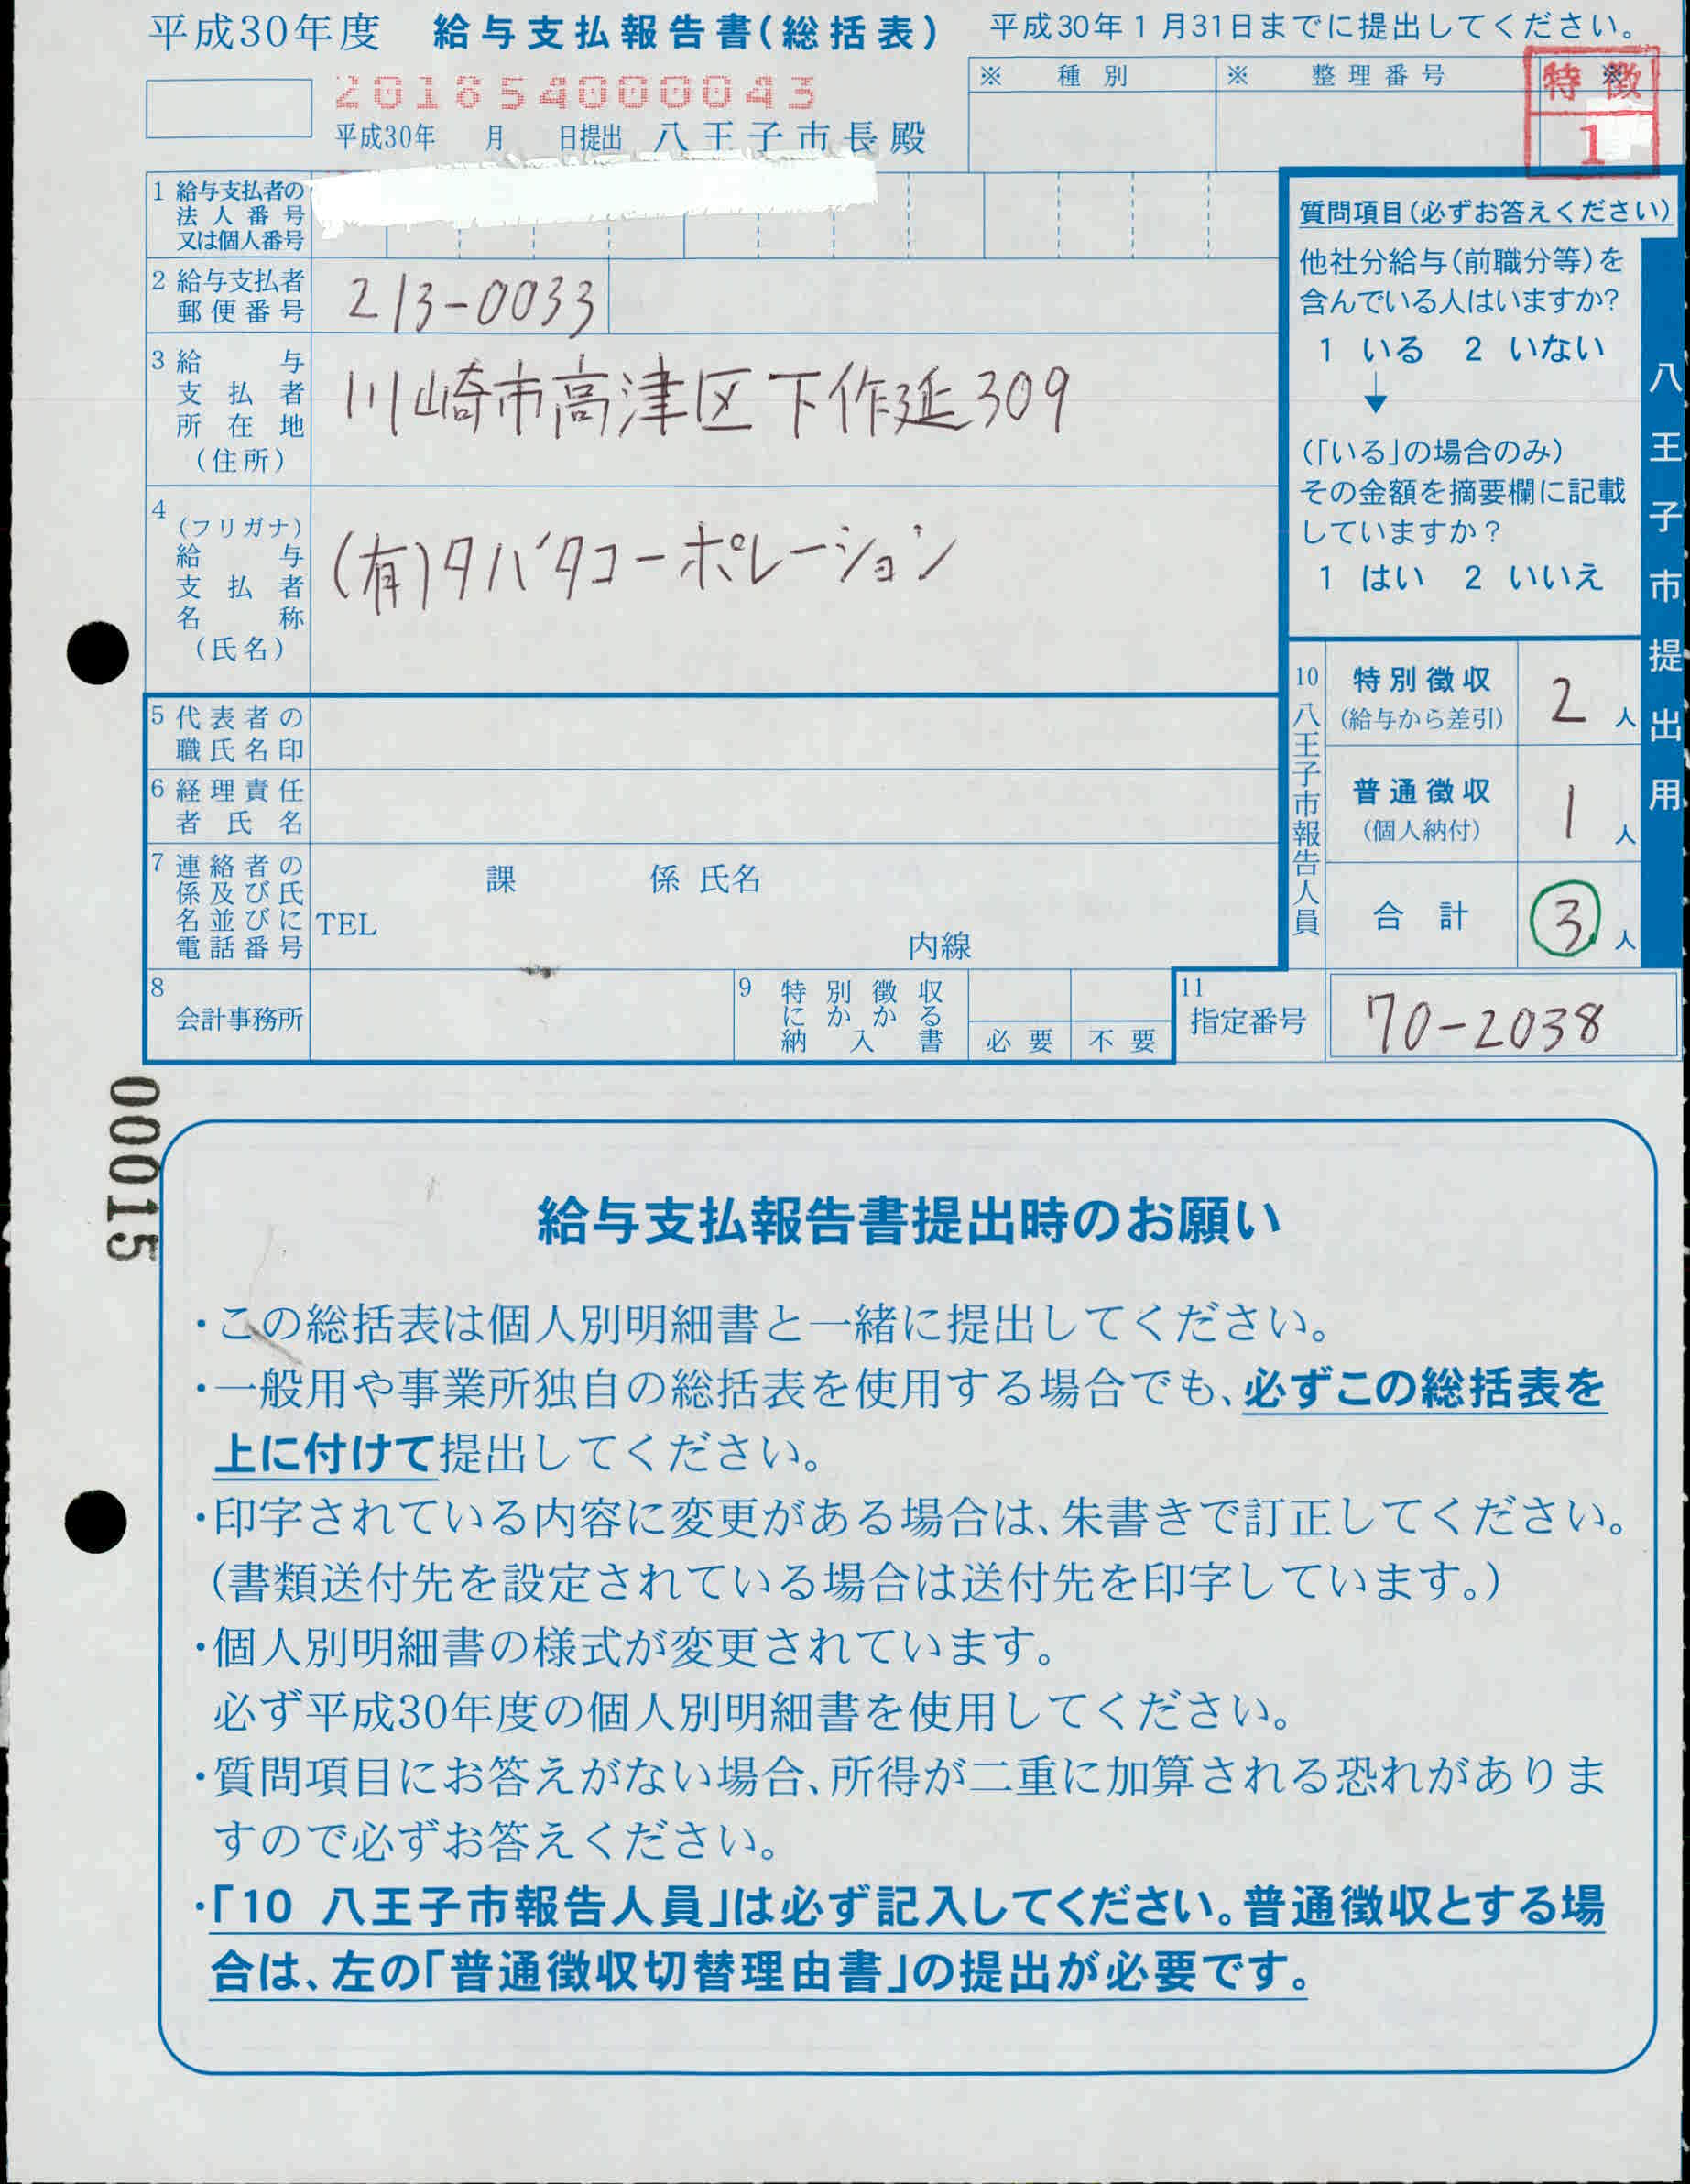 平成30年度 給与支払報告書(総括表) 平成30年1月31日までに提出してください。
201854000043
平成30年 月 日提出 八王子市長殿
※ 種別 ※ 整理番号 ※
特徴
1
1 給与支払者の
法人番号
又は個人番号
2 給与支払者
郵便番号
213-0033
3 給与
支払者
所在地
(住所)
川崎市高津区下作延309
4
(フリガナ)
給与
支払者
名称
(氏名)
(有)タバタコーポレーション
5 代表者の
職氏名印
6 経理責任
者氏名
7 連絡者の
係及び氏
名並びに
電話番号
課 係 氏名
TEL
内線
8
会計事務所
9 特別徴収
にかかる
納入書
必要 不要
質問項目(必ずお答えください)
他社分給与(前職分等)を
含んでいる人はいますか?
1 いる 2 いない
(「いる」の場合のみ)
その金額を摘要欄に記載
していますか?
1 はい 2 いいえ
10 八王子市報告人員
特別徴収
(給与から差引)
2 人
普通徴収
(個人納付)
1 人
合計
3 人
11
指定番号
70-2038
八王子市提出用
00015
給与支払報告書提出時のお願い
・この総括表は個人別明細書と一緒に提出してください。
・一般用や事業所独自の総括表を使用する場合でも、必ずこの総括表を
上に付けて提出してください。
・印字されている内容に変更がある場合は、朱書きで訂正してください。
(書類送付先を設定されている場合は送付先を印字しています。)
・個人別明細書の様式が変更されています。
必ず平成30年度の個人別明細書を使用してください。
・質問項目にお答えがない場合、所得が二重に加算される恐れがありま
すので必ずお答えください。
・「10 八王子市報告人員」は必ず記入してください。普通徴収とする場
合は、左の「普通徴収切替理由書」の提出が必要です。